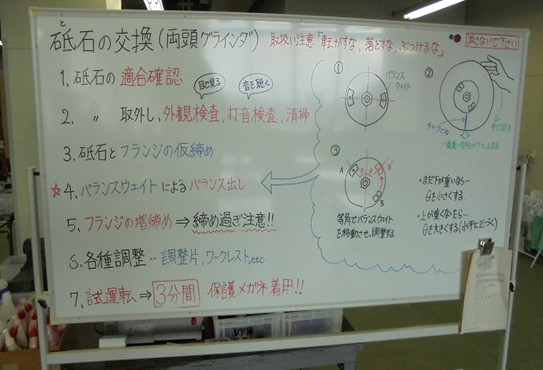 と
砥石の交換(両頭グラインダ) 取扱い注意「転がすな、落とすな、ぶつけるな」
消さないで下さい
1. 砥石の適合確認
目で見る 音を聴く
2. 〃 取外し、外観検査、打音検査、清掃
3. 砥石とフランジの仮締め
☆4. バランスウェイトによるバランス出し
5. フランジの増締め⇒締め過ぎ注意!!
6. 各種調整…調整片、ワークレスト、etc…
7. 試運転⇒3分間 保護メガネ着用!!
①
バランスウェイト
②
③
A
B
等角でバランスウェイト
を移動させ、調整する
・まだ下が重いなら…
θを小さくする
・上が重くなったら…
θを大きくする(水平に近づく)